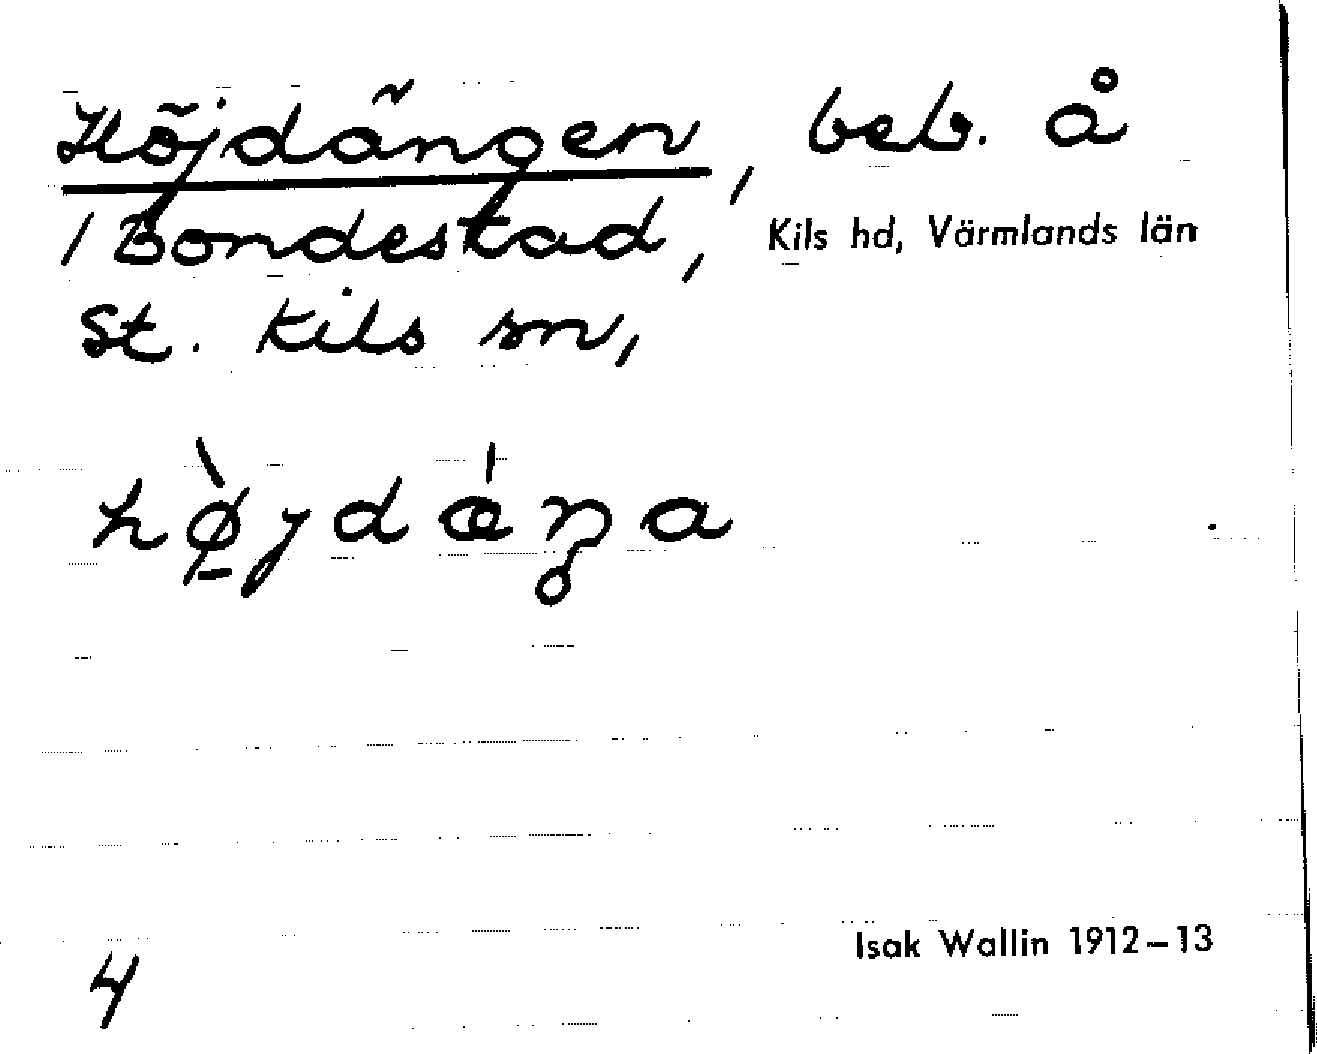 Höjdängen, beb. å
1 Bondestad, Kils hd, Värmlands län
St. Kils sn,
hø̀jdǽŋa
4
Isak Wallin 1912–13